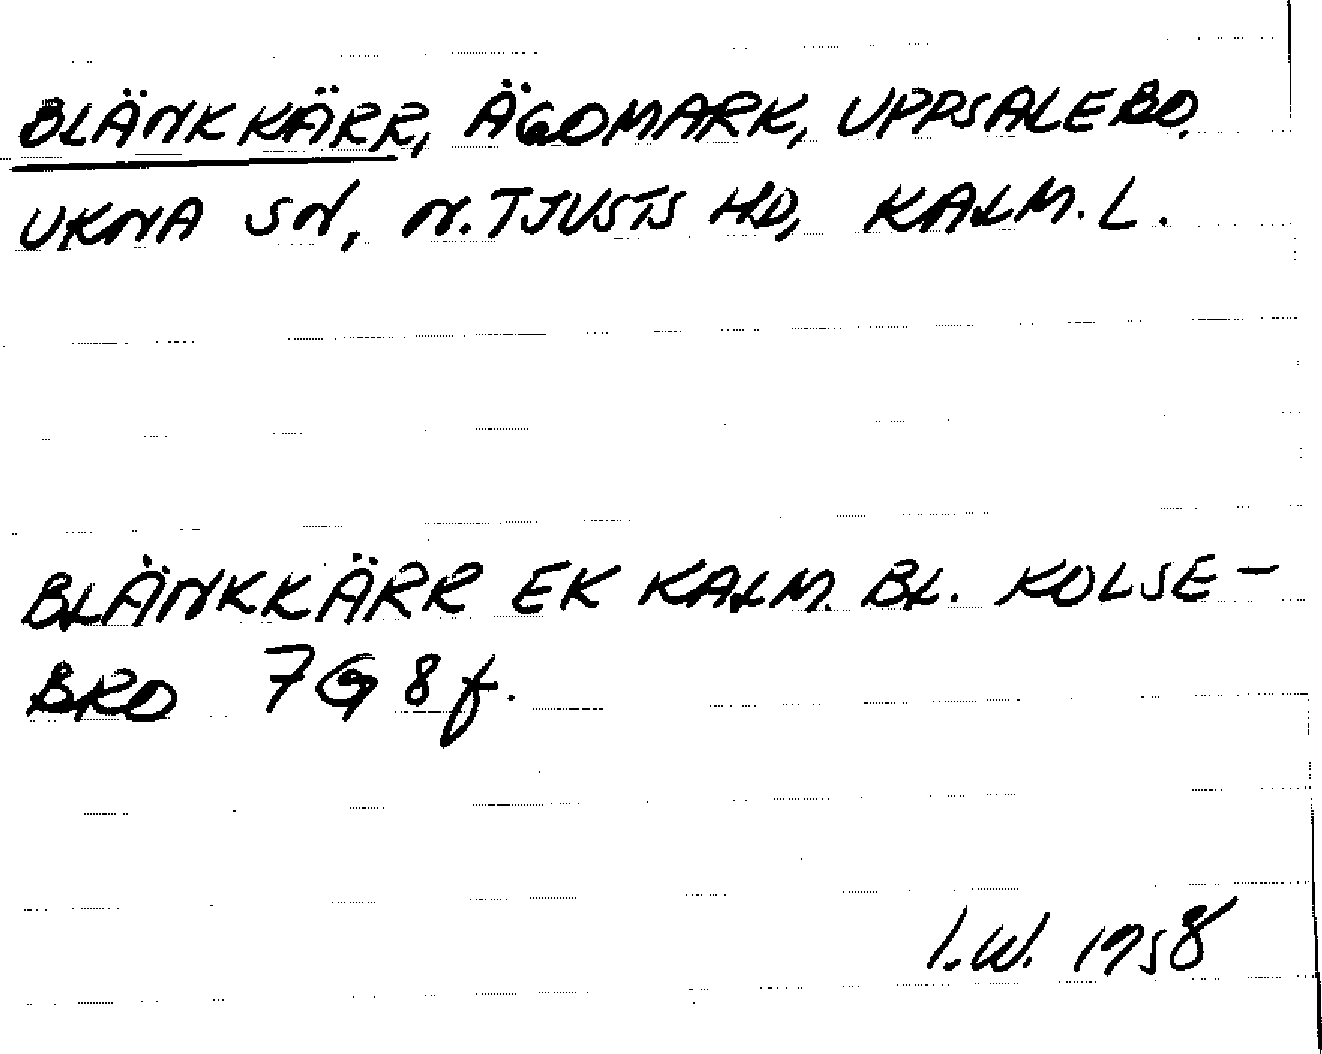 BLÄNKKÄRR, ÄGOMARK, UPPSALEBO,
UKNA SN, N. TJUSTS HD, KALM. L.
BLÄNKKÄRR EK KALM. BL. KOLSE-
BRO 7G 8f.
I.W. 1958